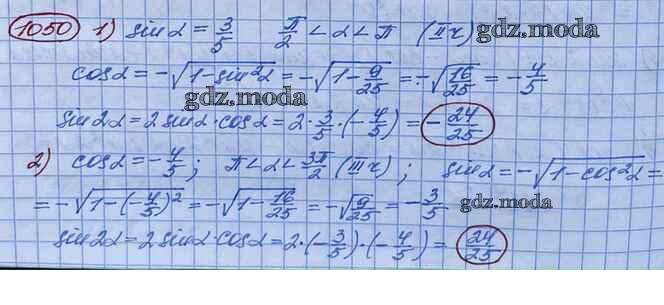 1050 1) sin α = 3/5 π/2 < α < π (II ч) gdz.moda
cos α = -√(1-sin²α) = -√(1-9/25) = -√(16/25) = -4/5
gdz.moda
sin 2α = 2 sin α · cos α = 2 · 3/5 · (-4/5) = -24/25
2) cos α = -4/5 ; π < α < 3π/2 (III ч) ; sin α = -√(1-cos²α) =
= -√(1-(-4/5)²) = -√(1-16/25) = -√(9/25) = -3/5 gdz.moda
sin 2α = 2 sin α · cos α = 2 · (-3/5) · (-4/5) = 24/25